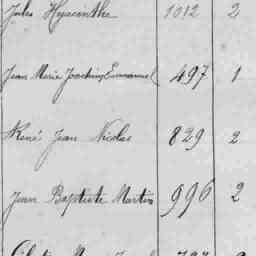 Jules Hyacinthe 1012 2
Jean Marie Joachim Emmanuel 497 1
René Jean Nicolas 829 2
Jean Baptiste Martin 996 2